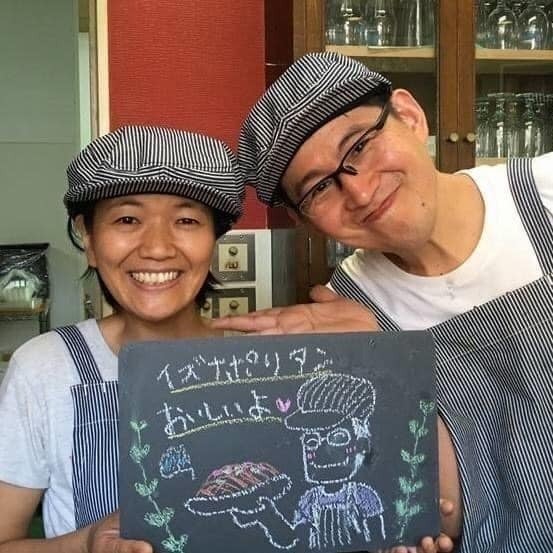 イズナポリタン
おいしいよ